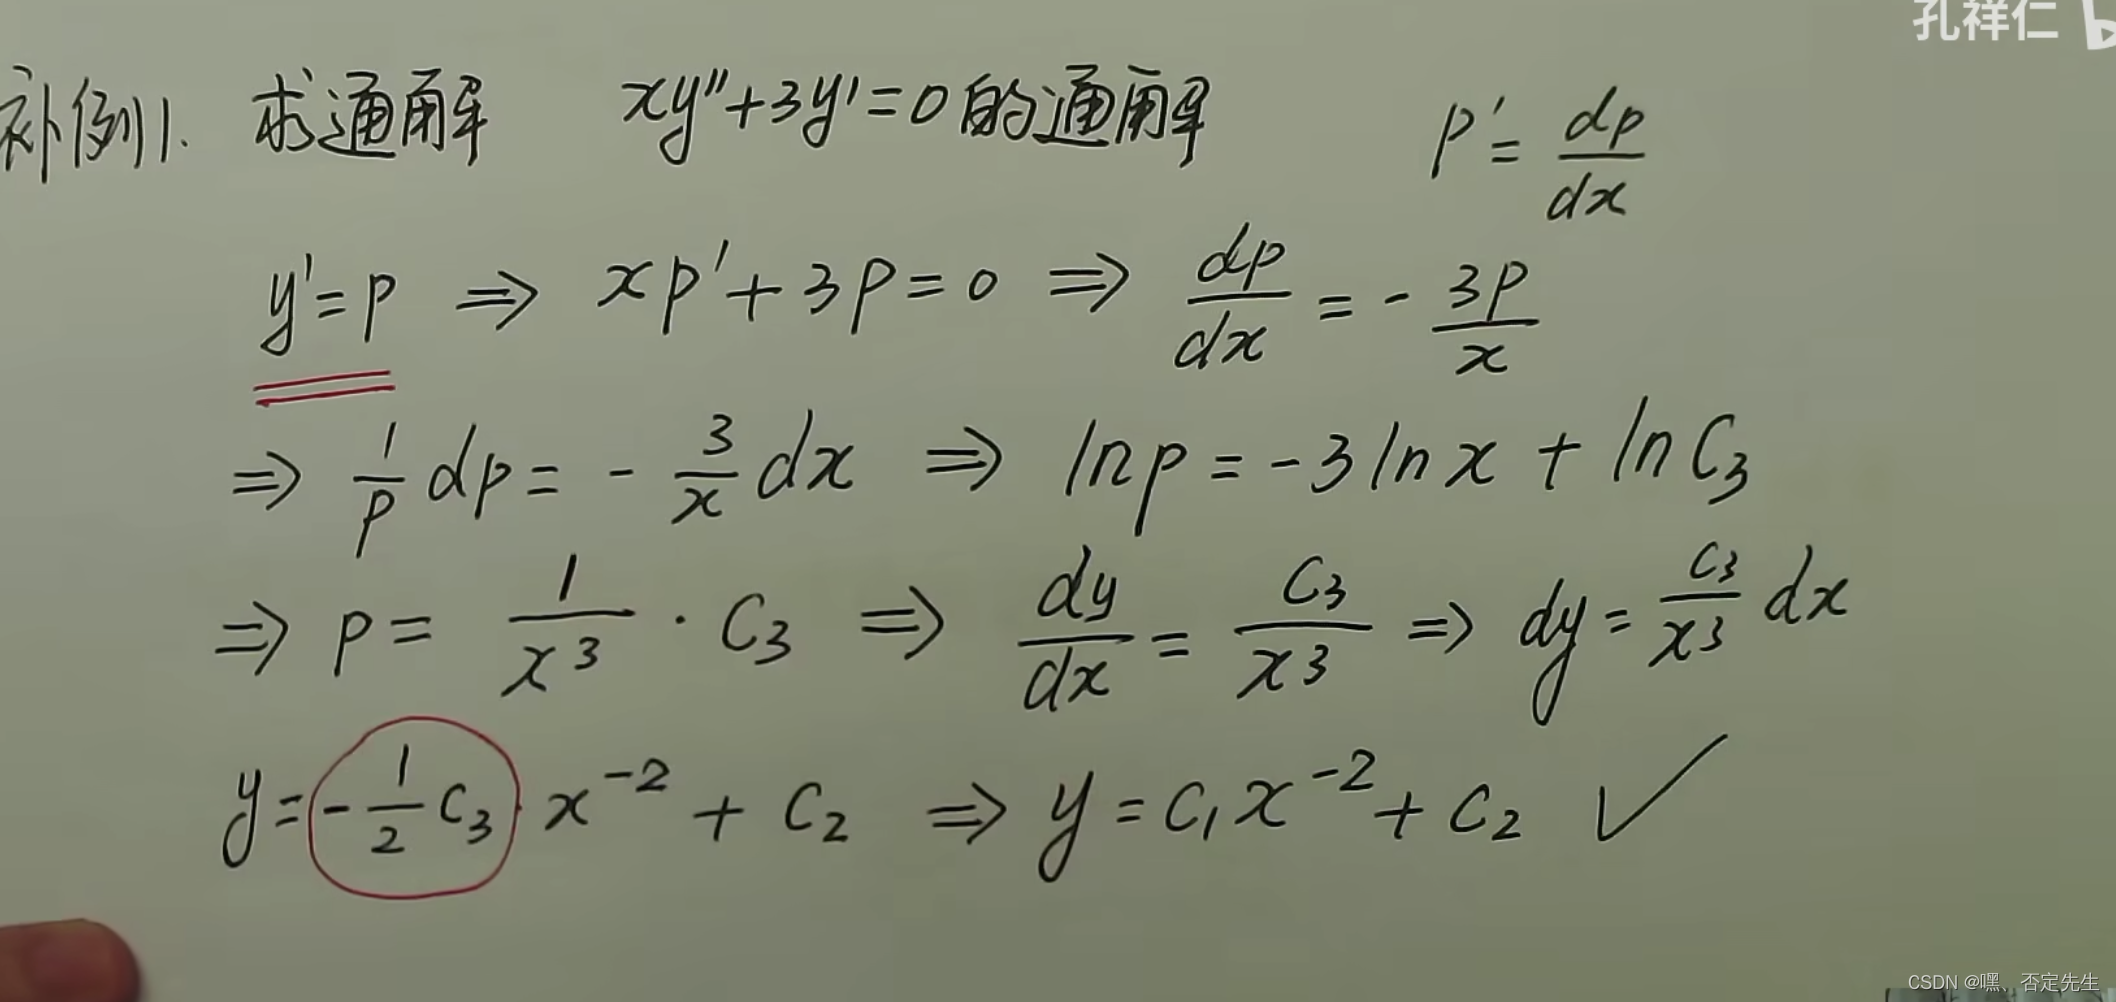 孔祥仁 b
补例1. 求通解 xy''+3y'=0的通解 p'=dp/dx
y'=p ⇒ xp'+3p=0 ⇒ dp/dx=-3p/x
⇒ 1/p dp=-3/x dx ⇒ lnp=-3lnx+lnC₃
⇒ p=1/x³·C₃ ⇒ dy/dx=C₃/x³ ⇒ dy=C₃/x³ dx
y=-1/2 C₃·x⁻²+C₂ ⇒ y=C₁x⁻²+C₂ ✓
CSDN @嘿、否定先生